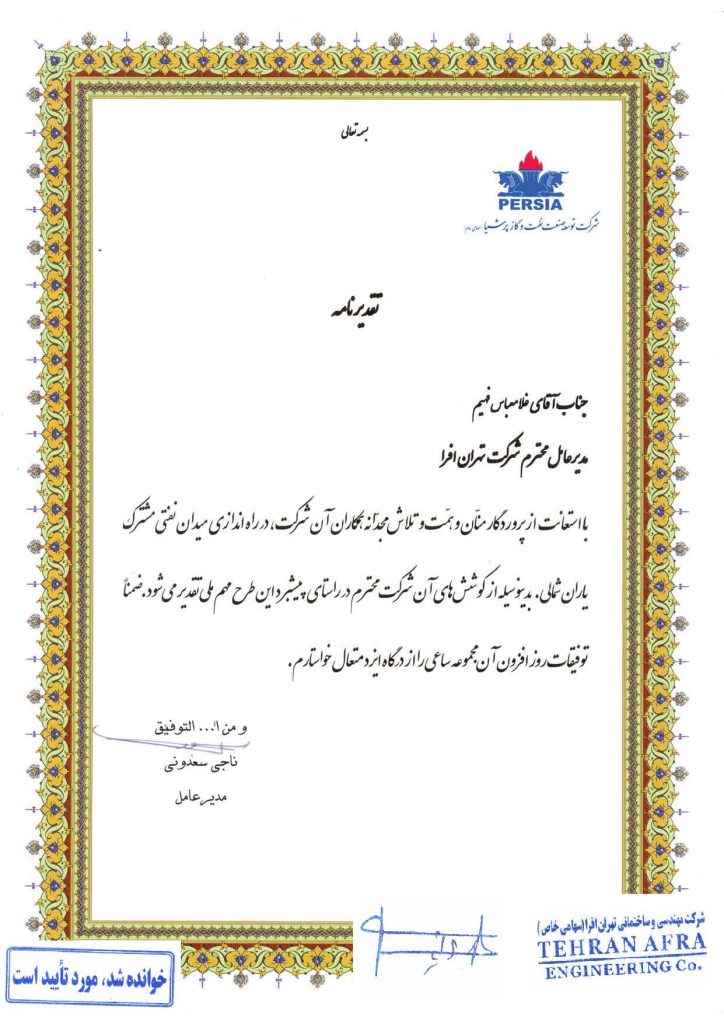 بسمه تعالی
PERSIA
شرکت توسعه صنعت نفت و گاز پرشیا (سهامی عام)
تقدیرنامه
جناب آقای غلامعباس فهیم
مدیرعامل محترم شرکت تهران افرا
با استعانت از پروردگار منّان و همّت و تلاش مجدّانه همکاران آن شرکت، در راه اندازی میدان نفتی مشترک
یاران شمالی. بدینوسیله از کوشش های آن شرکت محترم در راستای پیشبرد این طرح مهم ملی تقدیر می شود. ضمناً
توفیقات روز افزون آن مجموعه ساعی را از درگاه ایزد متعال خواستارم.
و من ا... التوفیق
ناجی سعدونی
مدیرعامل
شرکت مهندسی و ساختمانی تهران افرا (سهامی خاص)
TEHRAN AFRA
ENGINEERING Co.
خوانده شد، مورد تأیید است